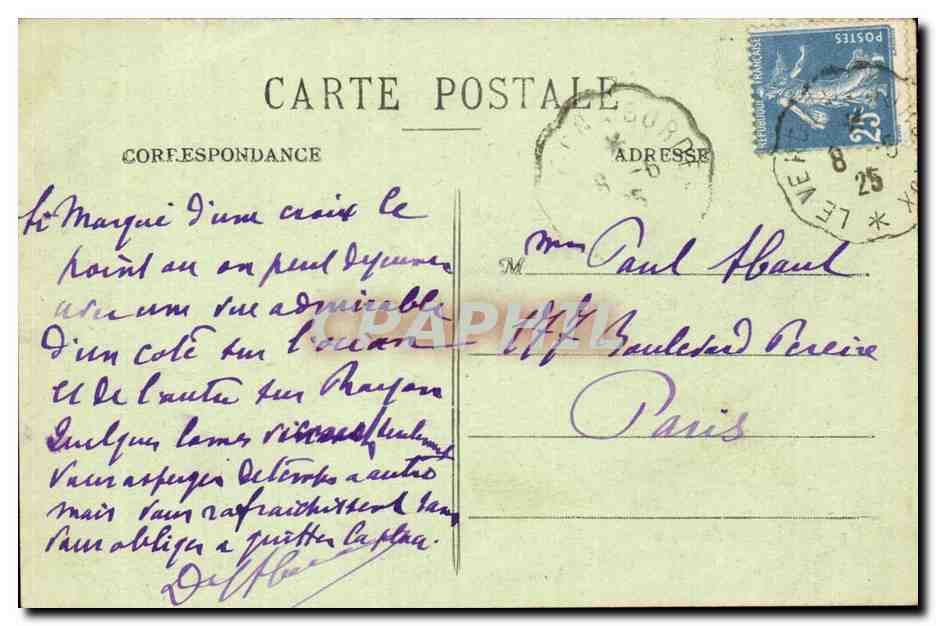 CARTE POSTALE
CORRESPONDANCE
ADRESSE
RÉPUBLIQUE FRANÇAISE
POSTES
25
LE VERD
8
25
Marqué d'une croix le
point ou on peut dejeuner
avec une vue admirable
d'un coté sur l'ocean
et de l'autre sur Royan
Quelques lames viennent seulement
vous asperger de temps a autre
mais vous rafraichissent sans
vous obliger a quitter la place.
M
me Paul
177 Boulevard Pereire
Paris
CPAPHIL